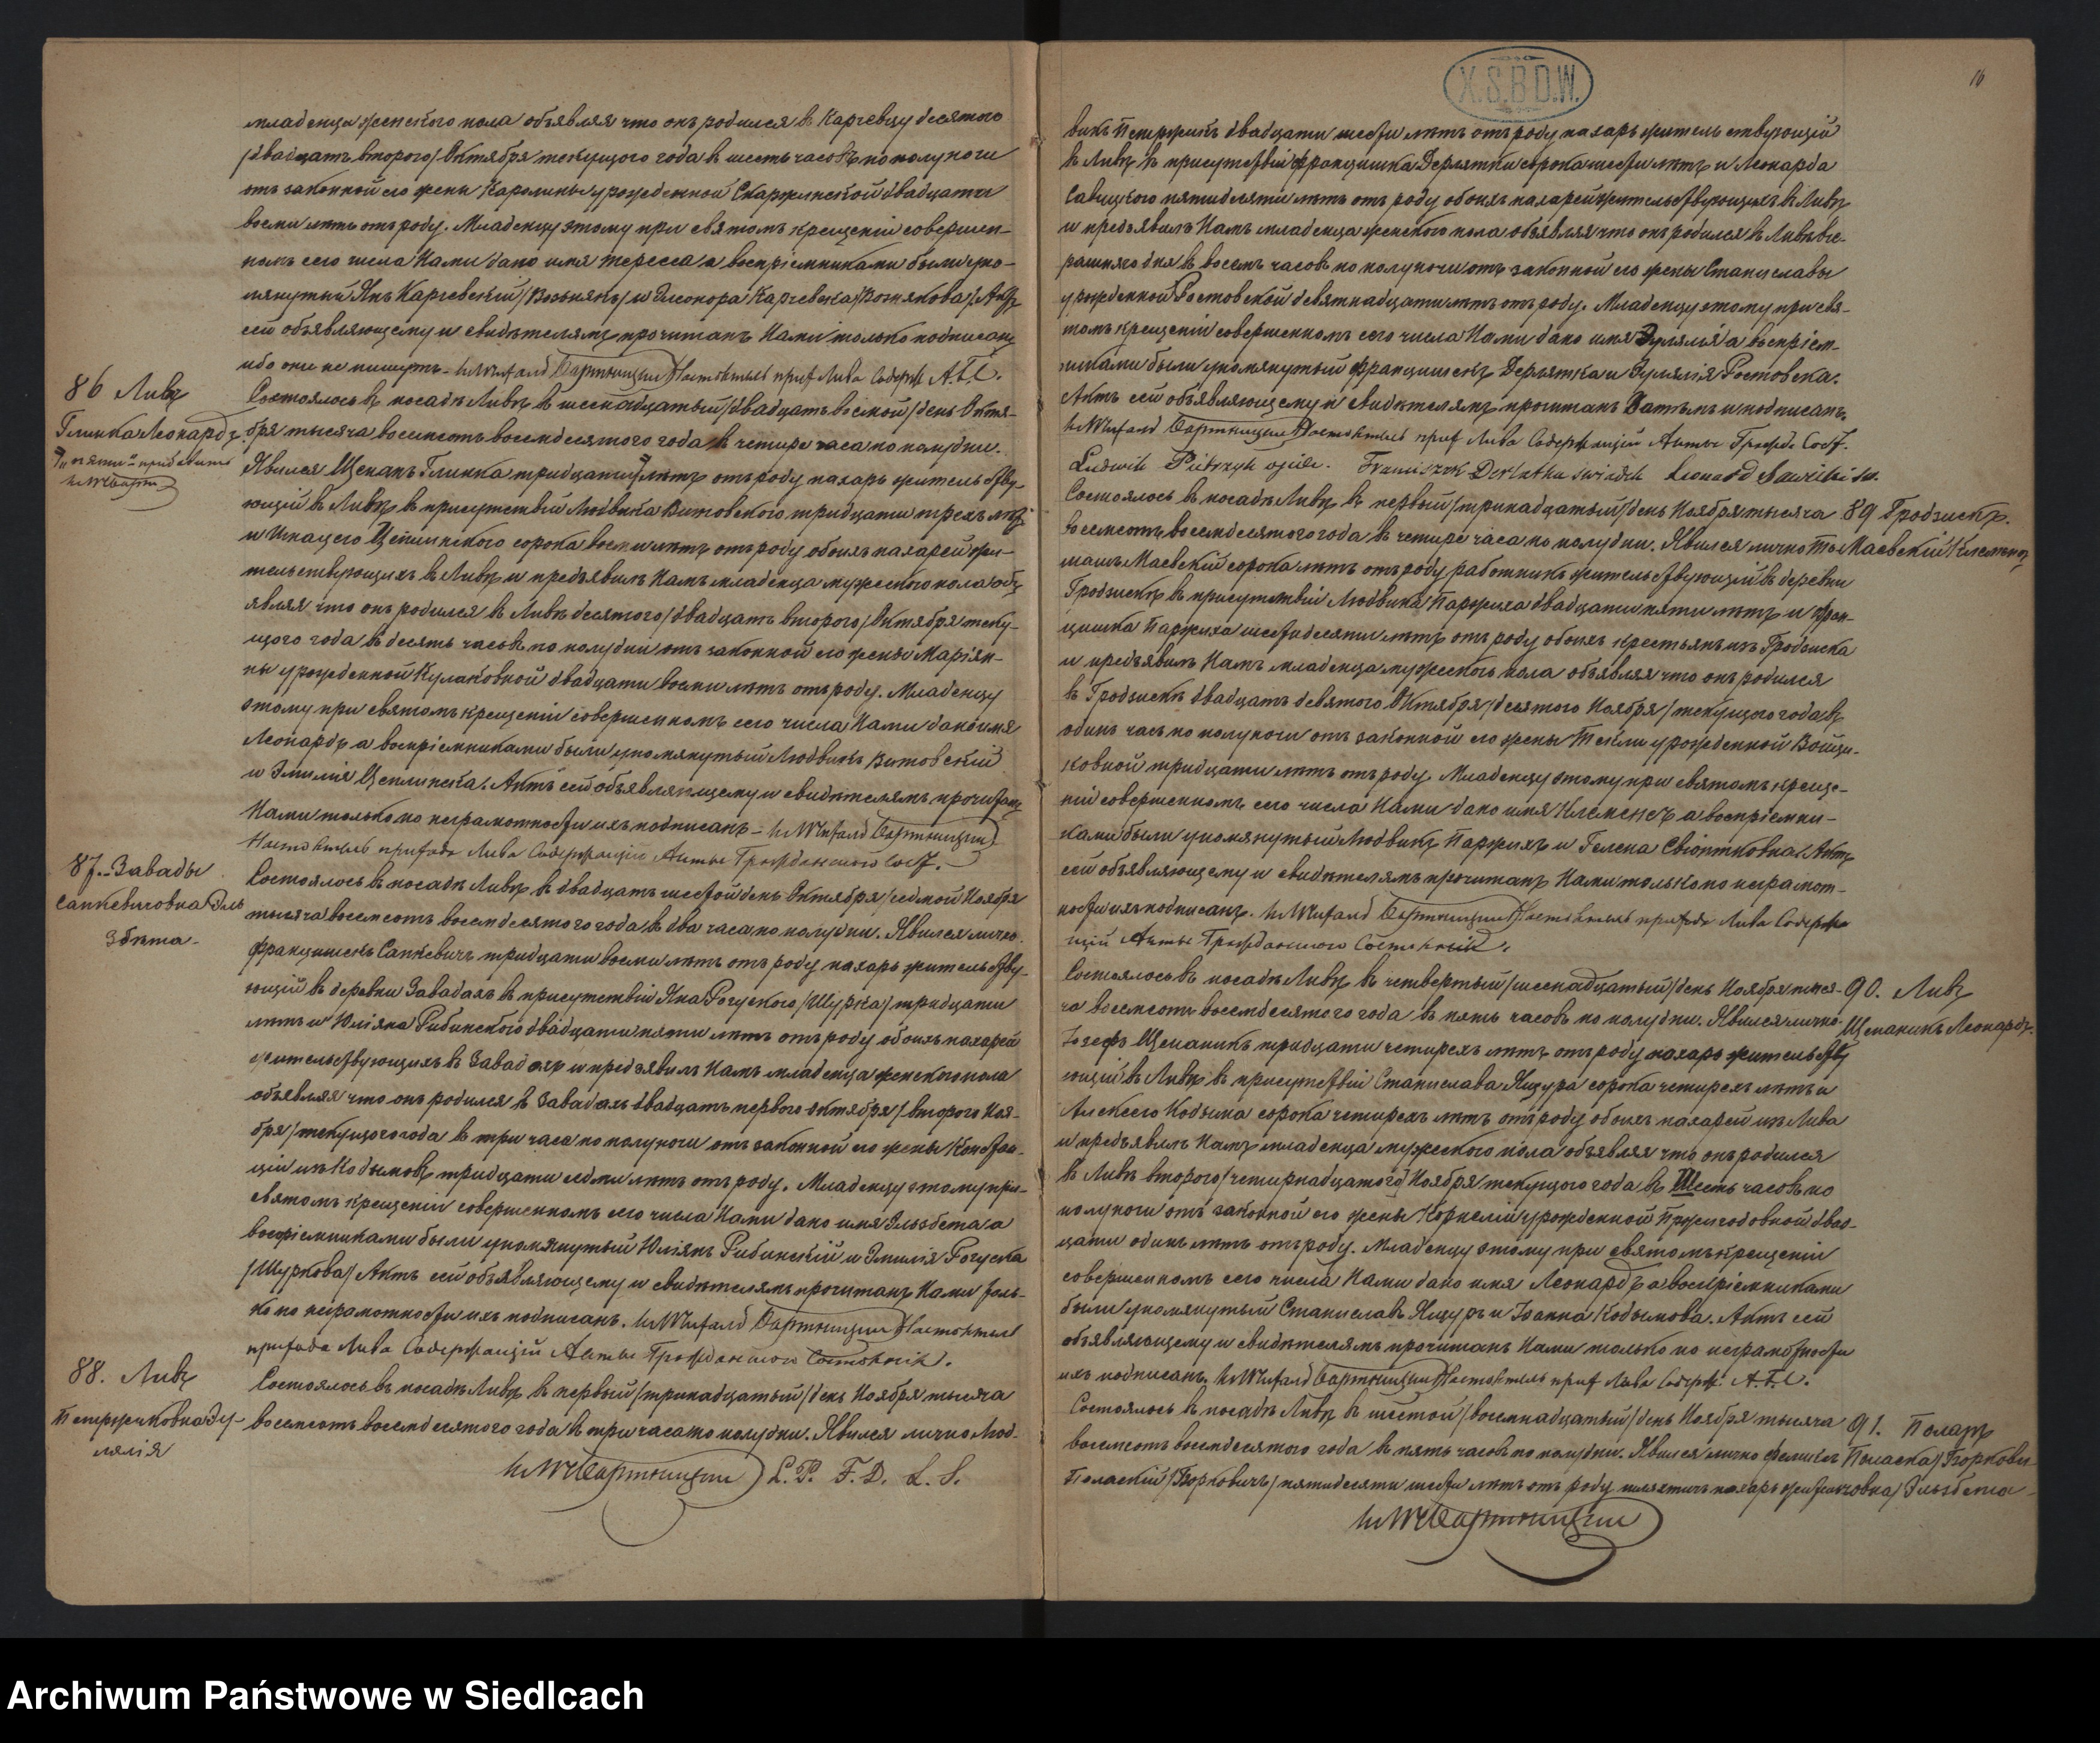 младенца женскаго пола объявляя что онъ родился въ Карчевцу десятого
/двадцать второго/ Октября текущого года въ шесть часовъ по полуночи
отъ законной его жены Каролины урожденной Скаржинской двадцати
восьми летъ отъ роду. Младенцу этому при святомъ крещеніи совершен-
номъ сего числа Нами дано имя Тересса а воспріемниками были упо-
мянутый Янъ Карчевскій /Возьнякъ/ и Элеонора Карчевска /Вознякова/ Актъ
сей объявляющему и свидѣтелямъ прочитанъ Нами только подписанъ
ибо они не пишутъ.
86 Ливъ
Глинка Леонардъ
"пяти" прибавлено
Состоялось въ посадѣ Ливъ въ шеснадцатый /двадцать восмой/ день Октя-
бря тысяча восемсотъ восемдесятого года въ четыре часа по полудни.
Явился Щепанъ Глинка тридцати летъ отъ роду пахарь жительству-
ющій въ Ливѣ въ присутствіи Людвика Витовского тридцати трехъ летъ
и Игнацего Цеплинского сорока восьми летъ отъ роду обоихъ пахарей жи-
тельствующихъ въ Ливѣ и предъявилъ Намъ младенца мужеского пола объ
являя что онъ родился въ Ливѣ десятого /двадцать второго/ Октября теку-
щого года въ десять часовъ по полудни отъ законной его жены Маріян-
ны урожденной Кулаковной двадцати восьми летъ отъ роду. Младенцу
этому при святомъ крещеніи совершенномъ сего числа Нами дано имя
Леонардъ а воспріемниками были упомянутый Людвикъ Витовскій
и Эмилія Цеплинска. Актъ сей объявляющему и свидѣтелямъ прочитанъ
Нами только по неграмотности ихъ подписанъ.
Настоятель прихода Лива Содержащій Акты Гражданского Сост.
87. Завады
Сапкевичовна Эль
збѣта
Состоялось въ посадѣ Ливъ въ двадцать шестой день Октября /седмой Ноября
тысяча восемсотъ восемдесятого года въ два часа по полудни. Явился лично
Францишекъ Сапкевичъ тридцати восьми летъ отъ роду пахарь жительству-
ющій въ деревни Завадахъ въ присутствіи Яна Рогуского /Шурка/ тридцати
летъ и Юліяна Рибинского двадцати пяти летъ отъ роду обоихъ пахарей
жительствующихъ въ Завадахъ и предъявилъ Намъ младенца женского пола
объявляя что онъ родился въ Завадахъ двадцать первого Октября /второго Ноя-
бря/ текущого года въ три часа по полуночи отъ законной его жены Констан-
ціи изъ Кодымовъ тридцати седми летъ отъ роду. Младенцу этому при
святомъ крещеніи совершенномъ сего числа Нами дано имя Эльзбета а
воспріемниками были упомянутый Юліянъ Рибинскій и Эмилія Рогуска
/Шуркова/ Актъ сей объявляющему и свидѣтелямъ прочитанъ Нами толь-
ко по неграмотности ихъ подписанъ. Настоятель
прихода Лива Содержащій Акты Гражданского Состояній.
88. Ливъ
Петржиковна Эу-
лялія
Состоялось въ посадѣ Ливъ въ первый /тринадцатый/ день Ноября тысяча
восемсотъ восемдесятого года въ три часа по полудни. Явился лично Люд-
L. P. F. D. L. S.
X.S.B.D.W.
16
викъ Петржикъ двадцати шести летъ отъ роду пахарь жительствующій
въ Ливѣ въ присутствіи Францишка Дерлятки сорока шести летъ и Леонарда
Савицкого пятидесяти летъ отъ роду обоихъ пахарей жительствующихъ въ Ливѣ
и предъявилъ Намъ младенца женского пола объявляя что онъ родился въ Ливѣ вче-
рашняго дня въ восемь часовъ по полуночи отъ законной его жены Станиславы
урожденной Ростовской девятнадцати летъ отъ роду. Младенцу этому при свя-
томъ крещеніи совершенномъ сего числа Нами дано имя Эулялія а воспріем-
никами были упомянутый Францишекъ Дерлятка и Эулялія Ростовска.
Актъ сей объявляющему и свидѣтелямъ прочитанъ Затѣмъ и подписанъ.
Настоятель прих Лива Содержащій Акты Гражд. Сост.
Ludwik Pietrzyk ojciec. Franciszek Derlatka swiadek Leonard Sawicki sw.
89 Гродзискъ.
Маевскій Клеменсъ
Состоялось въ посадѣ Ливъ въ первый /тринадцатый/ день Ноября тысяча
восемсотъ восемдесятого года въ четыре часа по полудни. Явился лично То-
машъ Маевскій сорока летъ отъ роду работникъ жительствующій въ деревни
Гродзискъ въ присутствіи Людвика Паржиха двадцати пяти летъ и Фран-
цишка Паржиха шестидесяти летъ отъ роду обоихъ крестьянъ изъ Гродзиска
и предъявилъ Намъ младенца мужеского пола объявляя что онъ родился
въ Гродзискѣ двадцать девятого Октября /десятого Ноября/ текущого года въ
одинъ часъ по полуночи отъ законной его жены Текли урожденной Войци-
ковной тридцати летъ отъ роду. Младенцу этому при святомъ креще-
ніи совершенномъ сего числа Нами дано имя Клеменсъ а воспріемни-
ками были упомянутый Людвикъ Паржихъ и Гелена Свіонтковна. Актъ
сей объявляющему и свидѣтелямъ прочитанъ Нами только по неграмот-
ности ихъ подписанъ. Настоятель прихода Лива Содержа
щій Акты Гражданского Состояній.
90. Ливъ
Щепаникъ Леонардъ.
Состоялось въ посадѣ Ливъ въ четвертый /шеснадцатый/ день Ноября тыся-
ча восемсотъ восемдесятого года въ пять часовъ по полудни. Явился лично
Іозефъ Щепаникъ тридцати четырехъ летъ отъ роду пахарь жительству
ющій въ Ливѣ въ присутствіи Станислава Ящура сорока четырехъ летъ и
Алексего Кодыма сорока четырехъ летъ отъ роду обоихъ пахарей изъ Лива
и предъявилъ Намъ младенца мужеского пола объявляя что онъ родился
въ Ливѣ второго /четырнадцатого/ Ноября текущого года въ Шесть часовъ по
полуночи отъ законной его жены Корнеліи урожденной Пржигодовной двад-
цати одинъ летъ отъ роду. Младенцу этому при святомъ крещеніи
совершенномъ сего числа Нами дано имя Леонардъ а воспріемниками
были упомянутый Станиславъ Ящуръ и Іоанна Кодымова. Актъ сей
объявляющему и свидѣтелямъ прочитанъ Нами только по неграмотности
ихъ подписанъ. Настоятель прих Лива Содерж. А.Г.С.
91. Поляскъ
Состоялось въ посадѣ Ливъ въ шестой /восемнадцатый/ день Ноября тысяча
восемсотъ восемдесятого года въ пять часовъ по полудни. Явился лично Феликсъ
Archiwum Państwowe w Siedlcach